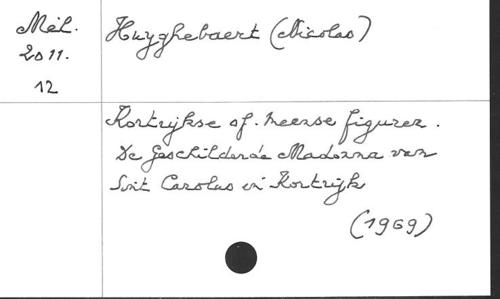 Mél.
2011.
12
Huyghebaert (Nicolas)
Kortrijkse of. heerse figuren.
De geschilderde Madonna van
Sint Carolus in Kortrijk
(1969)